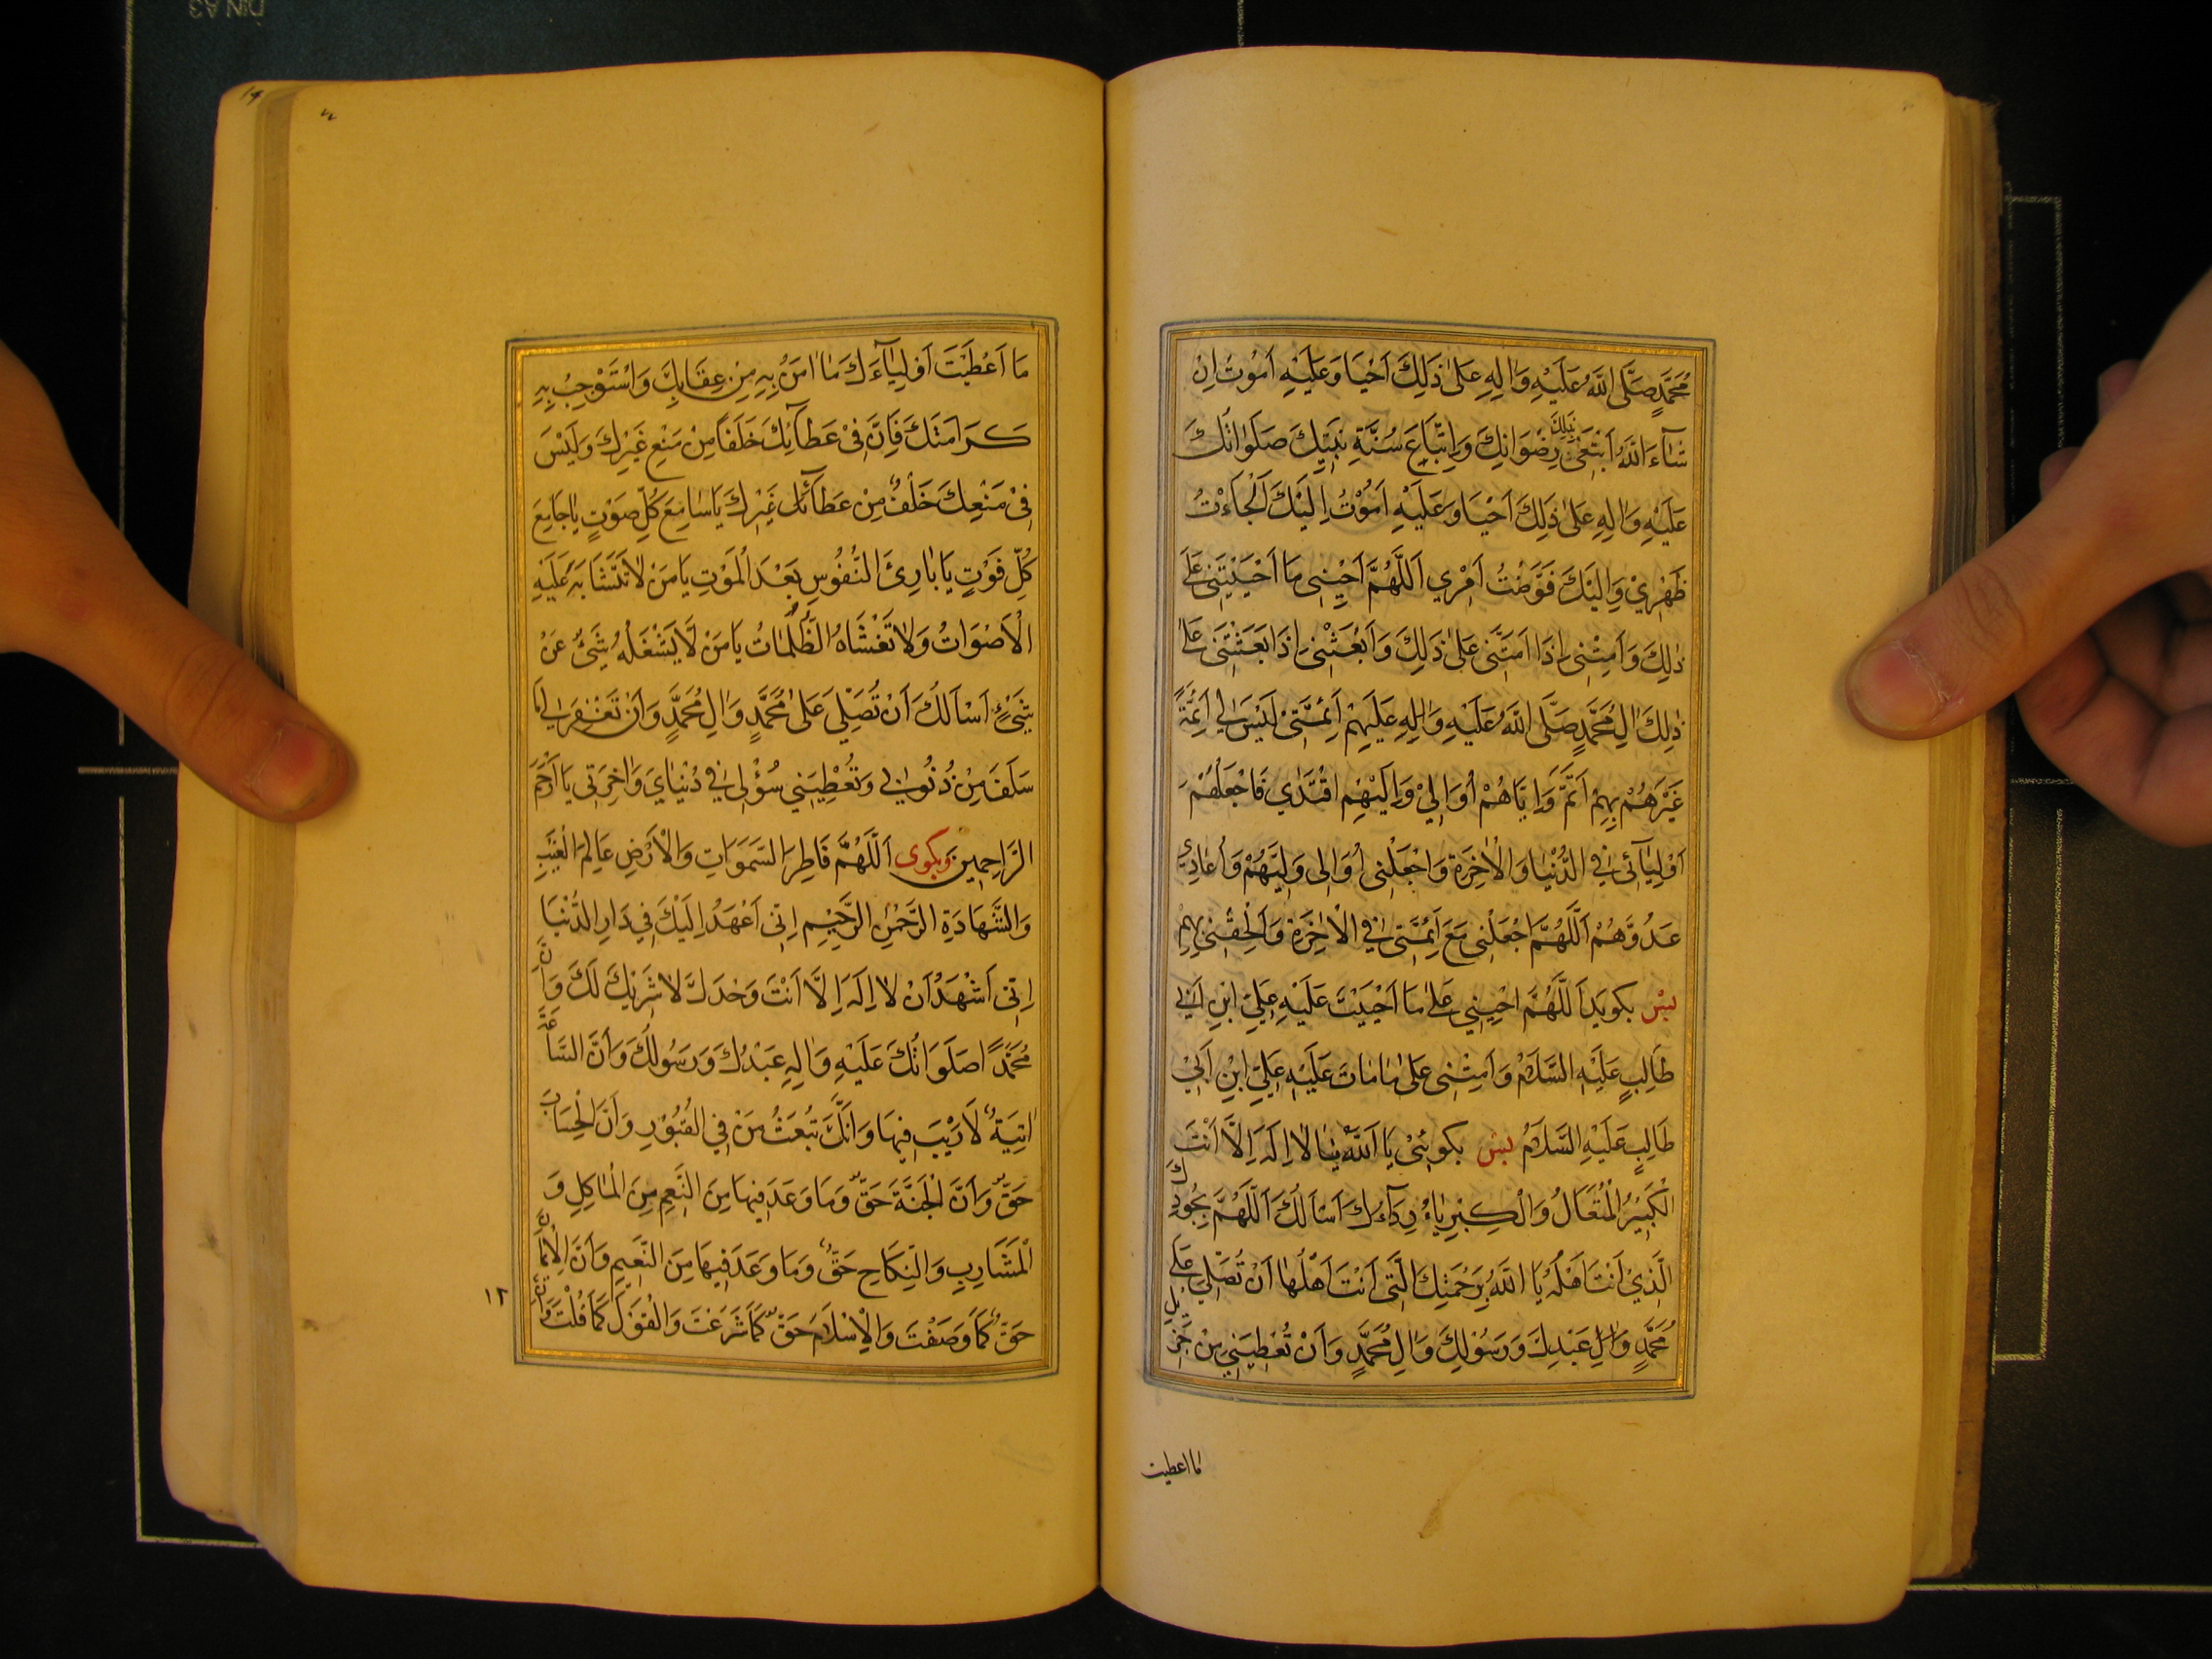 مُحَمَّدٍ صَلَّى اللَّهُ عَلَيْهِ وَاٰلِهِ عَلىٰ ذٰلِكَ اَحْيَا وَعَلَيْهِ اَمُوتُ اِنْ
شآءَ اللَّهُ اَبْتَغِى رِضْوَانِكَ وَاِتّبَاعَ سُنَّةِ نَبِيِّكَ صَلَوٰاتُكَ
عَلَيْهِ وَاٰلِهِ عَلىٰ ذٰلِكَ اَحْيَا وَعَلَيْهِ اَمُوْتُ اِلَيْكَ اَلْجَاءْتُ
ظَهْرِيْ وَاِلَيْكَ فَوَّضْتُ اَمْرِي اَللَّهُمَّ اَحْيِنِى مَا اَحْيَيْتَنِى عَلىٰ
ذٰلِكَ وَاَمِتْنِى اِذَا اَمَتَّنِى عَلىٰ ذٰلِكَ وَابْعَثْنِى اِذَا بَعَثْتَنِى عَلىٰ
ذٰلِكَ اٰلِ مُحَمَّدٍ صَلَّى اللَّهُ عَلَيْهِ وَاٰلِهِ عَلَيْهِمْ اَئِمَّتِى لَيْسَ لِي اَئِمَّةً
غَيْرَهُمْ بِهِمْ اَتَمَّ وَاِيَّاهُمْ اُوَالِيْ وَاِلَيْهِمْ اقْتَدِي فَاجْعَلْهُمْ
اَوْلِيٰآئِى فِي الدُّنْيٰا وَالْاٰخِرَةِ وَاجْعَلْنِى اُوَالِى وَلِيَّهُمْ وَاُعَادِيْ
عَدُوَّهُمْ اَللَّهُمَّ اجْعَلْنِى مَعَ اَئِمَّتِى فِي الْاٰخِرَةِ وَاَلْحِقْنِى بِهِمْ
پس بكويد اَللَّهُمَّ احْيِنِي عَلىٰ مَا اَحْيَيْتَ عَلَيْهِ عَلِيِّ ابْنِ اَبِي
طَالِبٍ عَلَيْهِ السَّلَامُ وَاَمِتْنِى عَلىٰ مٰا مٰاتَ عَلَيْهِ عَلِيِّ ابْنِ اَبِيْ
طَالِبٍ عَلَيْهِ السَّلَامُ پس بكوئى يَا اَللَّهُ يٰا لٰا اِلَهَ اِلَّا اَنْتَ
الْكَبِيْرُ الْمُتَعَالُ وَالْكِبْرِيٰاءُ رِدٰآءُكَ اَسْاَلُكَ اَللَّهُمَّ بِجُودِكَ
الَّذِيْ اَنْتَ اَهْلُهُ يَا اللَّهُ بِرَحْمَتِكَ الَّتِى اَنْتَ اَهْلُهٰا اَنْ تُصَلِّي عَلىٰ
مُحَمَّدٍ وَاٰلِ عَبْدِكَ وَرَسُوْلِكَ وَاٰلِ مُحَمَّدٍ وَاَنْ تُعْطِيَنِي مِنْ جَزِيْلِ
مٰا اعطيت
مَا اَعْطَيْتَ اَوْلِيٰآءَكَ مٰا اٰمَنُ بِهِ مِنْ عِقَابِكَ وَاَسْتَوْجِبُ بِهِ
كَرَامَتَكَ فَاِنَّ فِىْ عَطَآئِكَ خَلَفاً مِنْ مَنْعِ غَيْرِكَ وَلَيْسَ
فِىْ مَنْعِكَ خَلَفٌ مِنْ عَطآئِ غَيْرِكَ يَا سٰامِعَ كُلِّ صَوْتٍ يٰا جَامِعَ
كُلِّ فَوْتٍ يَا بٰارِئَ النُّفُوسِ بَعْدَ الْمَوْتِ يَا مَنْ لٰا تَتَشَابَهُ عَلَيْهِ
الْاَصْوَاتُ وَلاٰ تَغْشَاهُ الظُّلُمٰاتُ يَا مَنْ لَا يَشْغَلُهُ شَىْءٌ عَنْ
شَىْءٍ اَسْاَلُكَ اَنْ تُصَلِّيَ عَلىٰ مُحَمَّدٍ وَاٰلِ مُحَمَّدٍ وَاَنْ تَغْفِرَ لِي مٰا
سَلَفَ مِنْ ذُنُوبِي وَتُعْطِيَنِي سُؤْلِى فِي دُنْيٰايَ وَاٰخِرَتِى يَا اَرْحَمَ
الرَّاحِمِينَ وبكوى اَللَّهُمَّ فَاطِرَ السَّمَوَاتِ وَالْاَرْضِ عَالِمَ الْغَيْبِ
وَالشَّهَادَةِ الرَّحْمٰنِ الرَّحِيْمِ اِنِّى اَعْهَدُ اِلَيْكَ فِي دَارِ الدُّنْيَا
اِنِّى اَشْهَدُ اَنْ لٰا اِلَهَ اِلَّا اَنْتَ وَحْدَكَ لَا شَرِيْكَ لَكَ وَاَنَّ
مُحَمَّدًا صَلَوَاتُكَ عَلَيْهِ وَاٰلِهِ عَبْدُكَ وَرَسُولُكَ وَاَنَّ السَّاعَةَ
اٰتِيَةٌ لَا رَيْبَ فِيهَا وَاَنَّكَ تَبْعَثُ مَنْ فِي الْقُبُوْرِ وَاَنَّ الْحِسَابَ
حَقٌّ وَاَنَّ الْجَنَّةَ حَقٌّ وَمَا وَعَدَ فِيهَا مِنَ النَّعِمِ مِنَ الْمٰاكِلِ وَ
الْمَشَارِبِ وَالنِّكَاحِ حَقٌّ وَمَا وَعَدَ فِيهَا مِنَ النَّعِيمِ وَاَنَّ الْاِيمٰانَ
حَقٌّ كَمَا وَصَفْتَ وَالْاِسْلَامَ حَقٌّ كَمَا شَرَعْتَ وَالْقَوْلَ كَمَا قُلْتَ وَاَنَّ
١٢